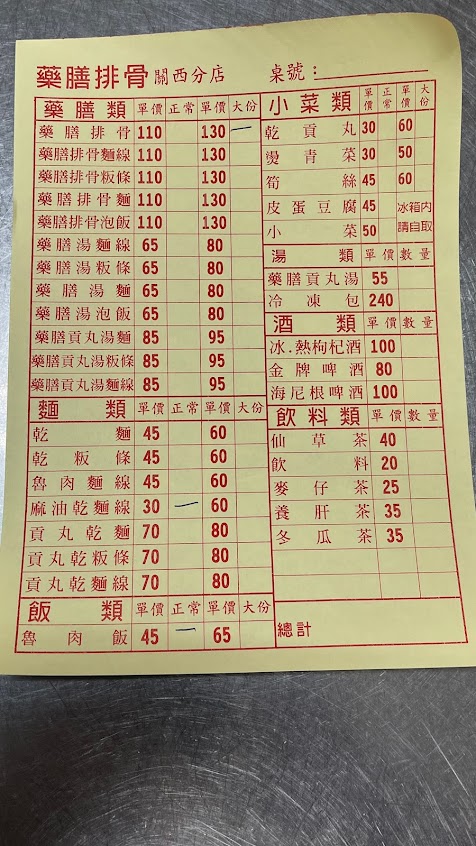 藥膳排骨關西分店 桌號：
藥膳類 單價 正常 單價 大份
藥膳排骨 110 130 一
藥膳排骨麵線 110 130
藥膳排骨粄條 110 130
藥膳排骨麵 110 130
藥膳排骨泡飯 110 130
藥膳湯麵線 65 80
藥膳湯粄條 65 80
藥膳湯麵 65 80
藥膳湯泡飯 65 80
藥膳貢丸湯麵 85 95
藥膳貢丸湯粄條 85 95
藥膳貢丸湯麵線 85 95
麵類 單價 正常 單價 大份
乾麵 45 60
乾粄條 45 60
魯肉麵線 45 60
麻油乾麵線 30 一 60
貢丸乾麵 70 80
貢丸乾粄條 70 80
貢丸乾麵線 70 80
飯類 單價 正常 單價 大份
魯肉飯 45 一 65
小菜類 單價 正常 單價 大份
乾貢丸 30 60
燙青菜 30 50
筍絲 45 60
皮蛋豆腐 45 冰箱內
小菜 50 請自取
湯類 單價 數量
藥膳貢丸湯 55
冷凍包 240
酒類 單價 數量
冰.熱枸杞酒 100
金牌啤酒 80
海尼根啤酒 100
飲料類 單價 數量
仙草茶 40
飲料 20
麥仔茶 25
養肝茶 35
冬瓜茶 35
總計